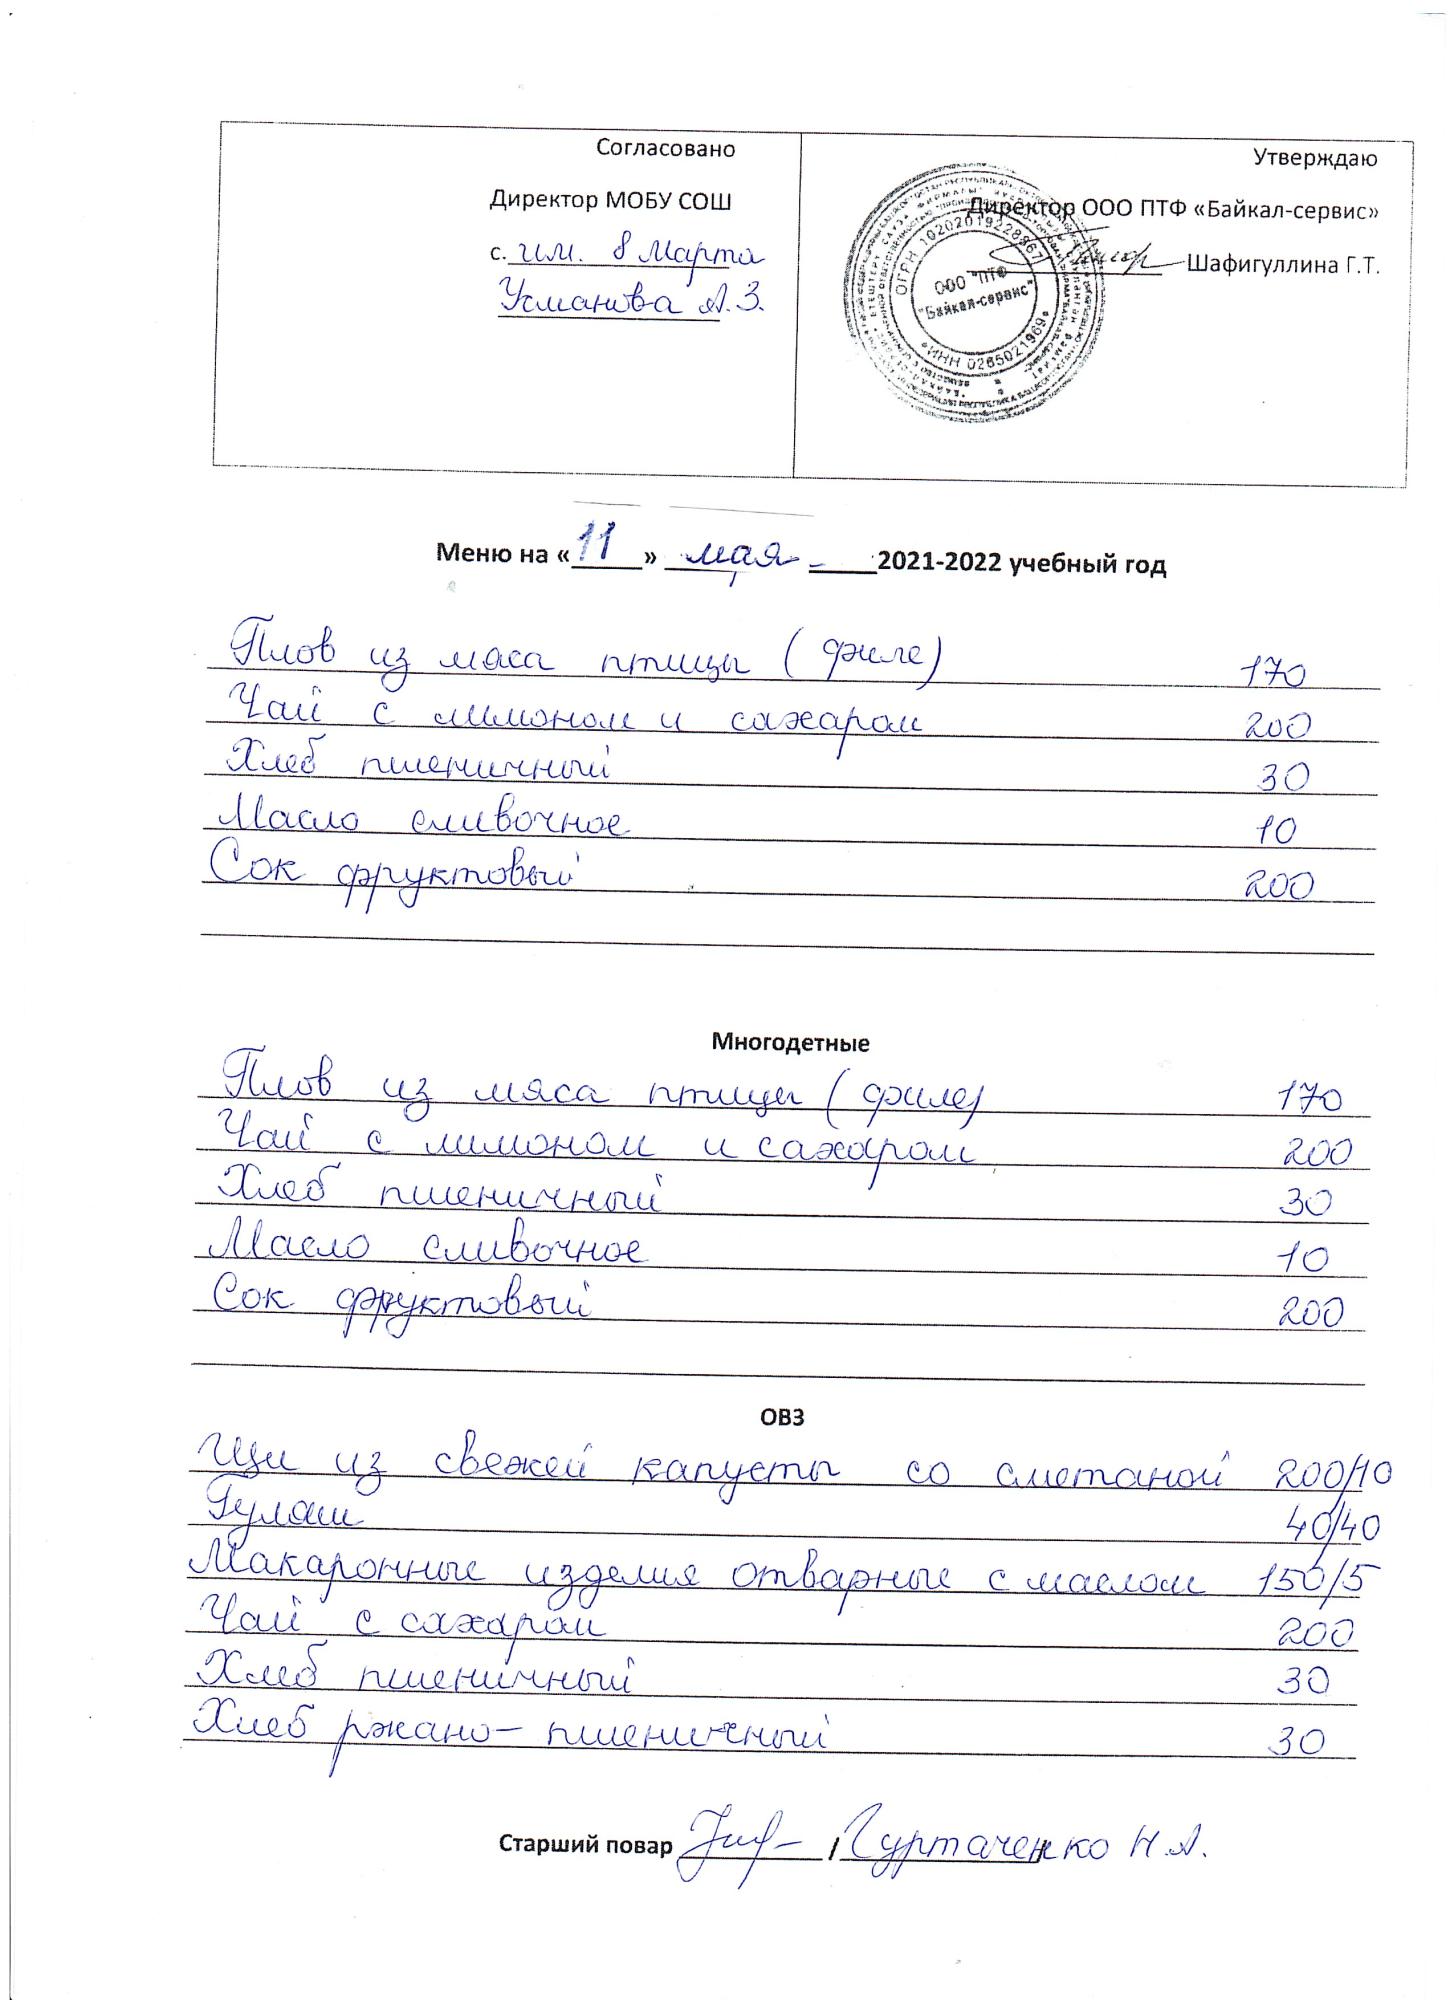 Согласовано
Директор МОБУ СОШ
с. им. 8 Марта
Усманова А.З.
Утверждаю
Директор ООО ПТФ «Байкал-сервис»
Шафигуллина Г.Т.
ОГРН 1020201922896
ООО "ПТФ
"Байкал-сервис"
ИНН 0265021969
Меню на «11» мая 2021-2022 учебный год
Плов из мяса птицы (филе) 170
Чай с лимоном и сахаром 200
Хлеб пшеничный 30
Масло сливочное 10
Сок фруктовый 200
Многодетные
Плов из мяса птицы (филе) 170
Чай с лимоном и сахаром 200
Хлеб пшеничный 30
Масло сливочное 10
Сок фруктовый 200
ОВЗ
Щи из свежей капусты со сметаной 200/10
Гуляш 40/40
Макаронные изделия отварные с маслом 150/5
Чай с сахаром 200
Хлеб пшеничный 30
Хлеб ржано-пшеничный 30
Старший повар / Гуртаченко Н.А.